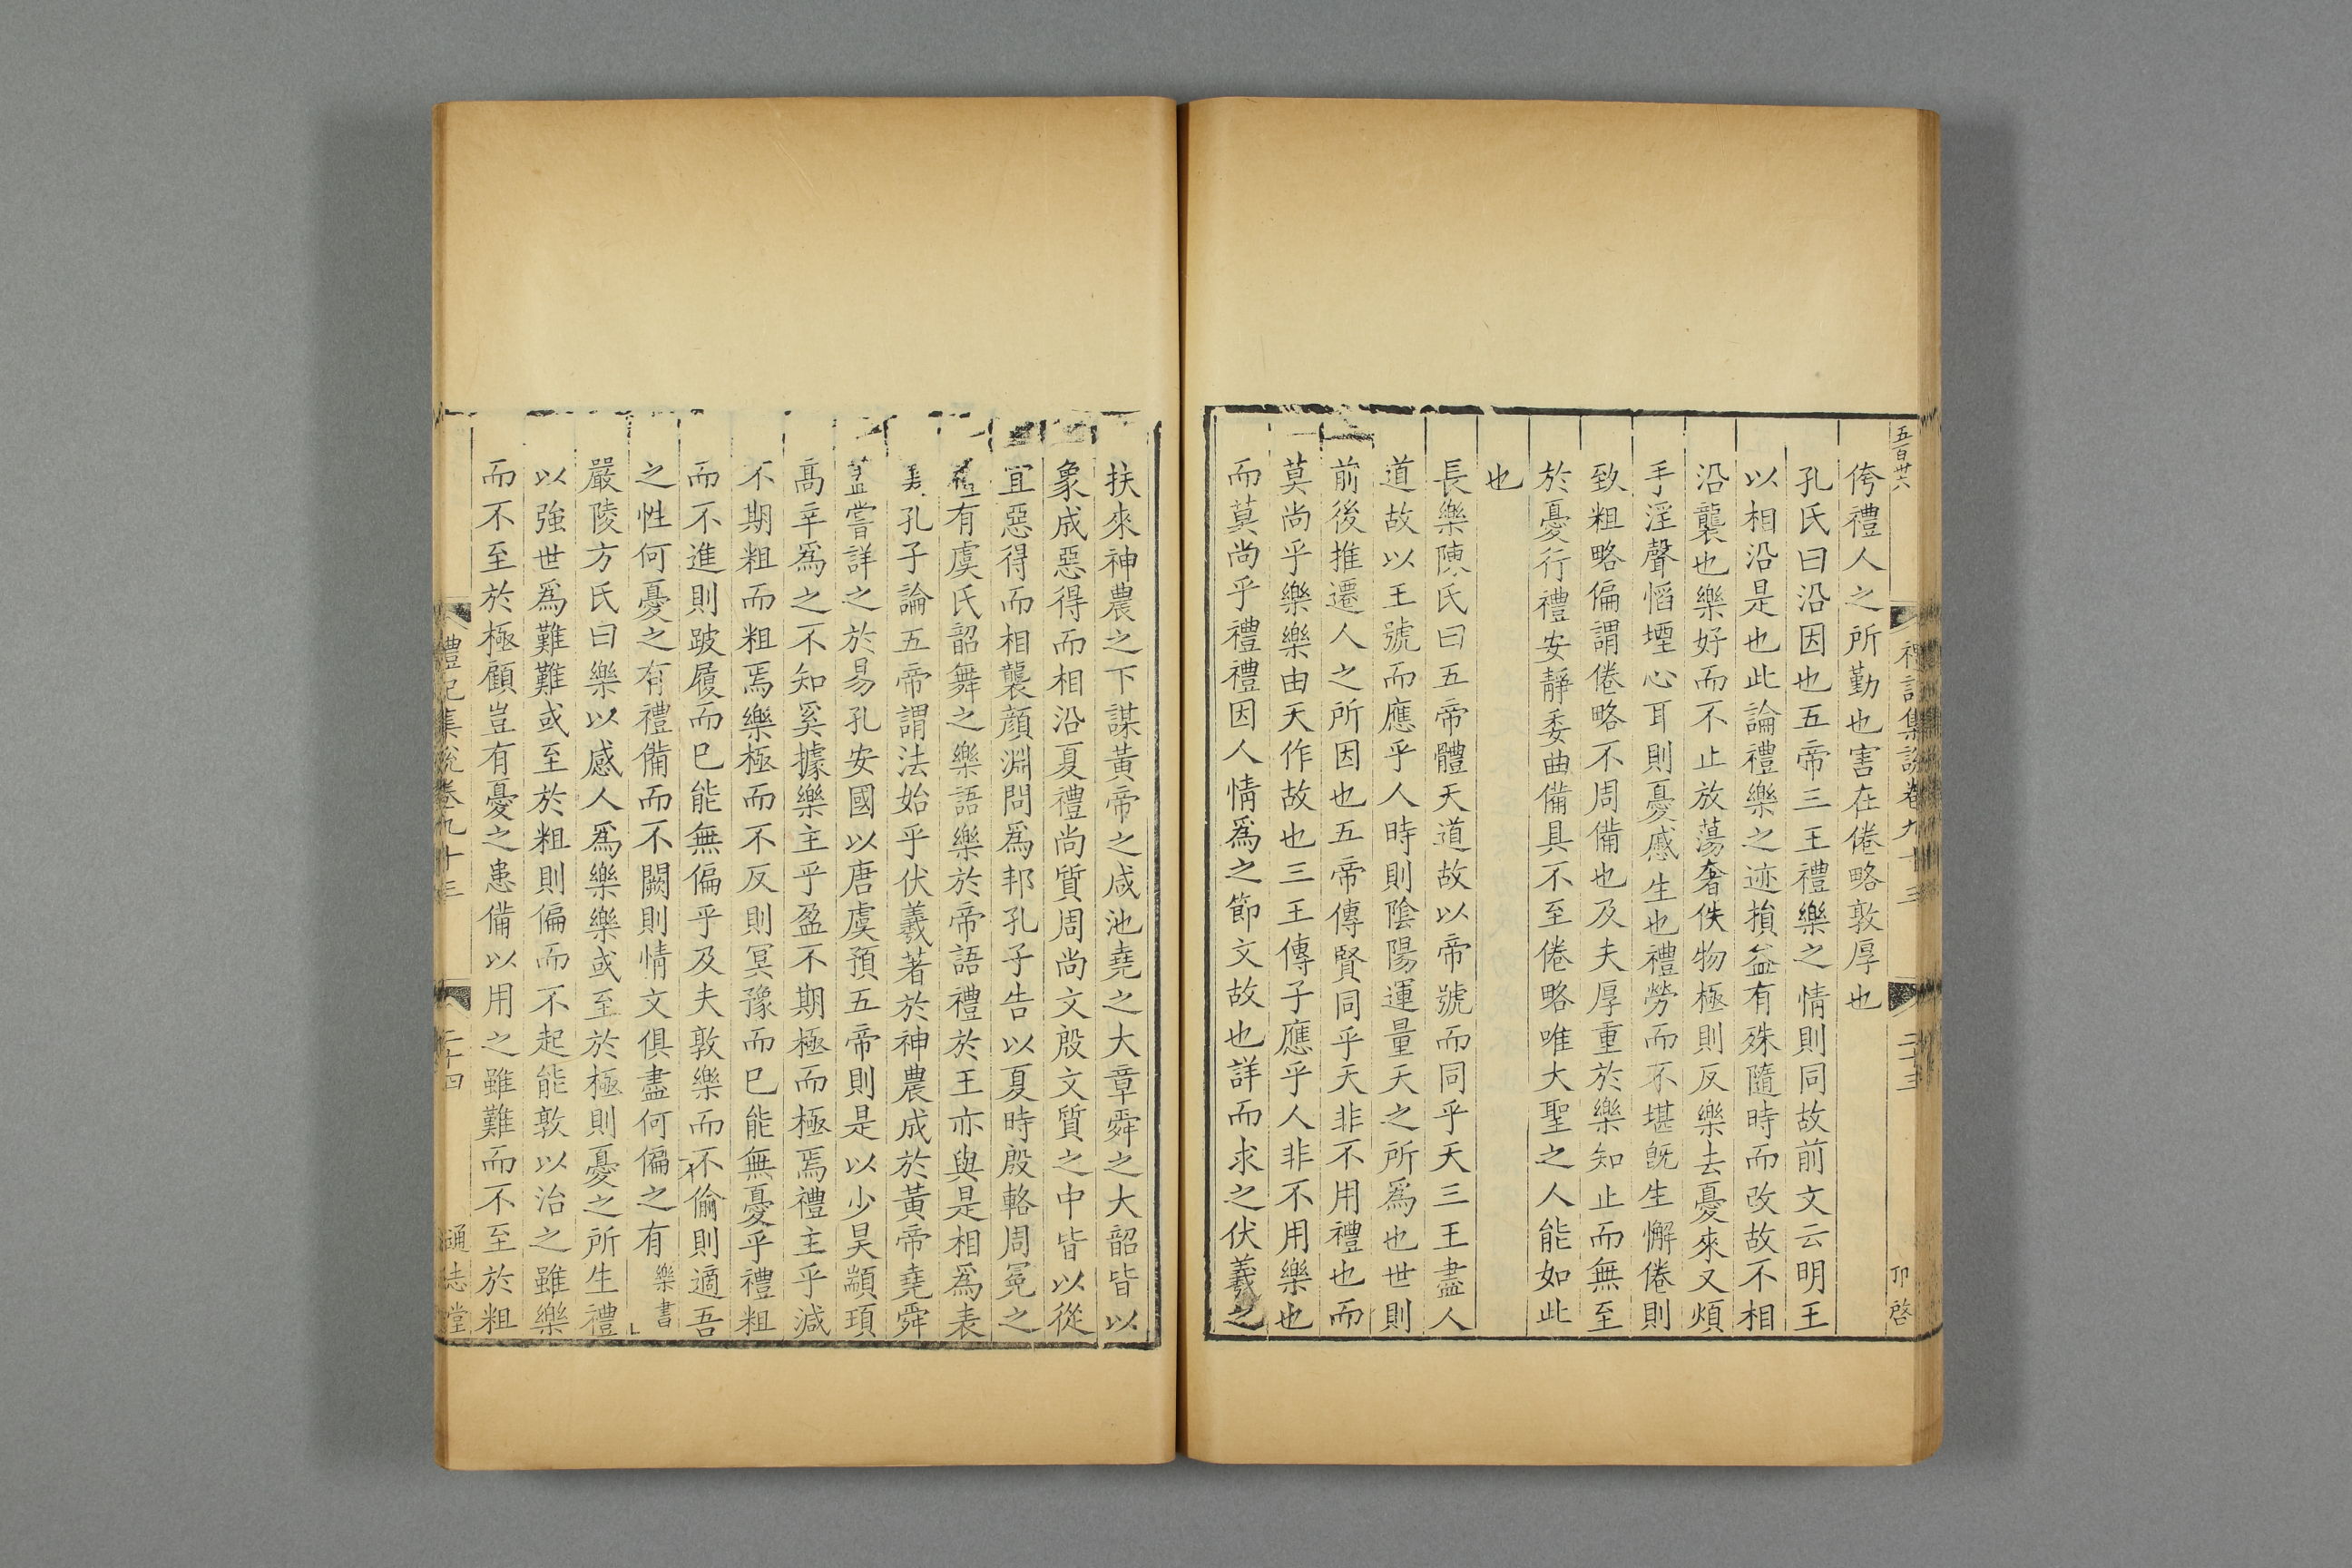 五百卅六
禮記集說卷九十三
二十三
卬啓
侉禮人之所勤也害在倦略敦厚也
孔氏曰沿因也五帝三王禮樂之情則同故前文云明王
以相沿是也此論禮樂之迹損益有殊隨時而改故不相
沿襲也樂好而不止放蕩奢佚物極則反樂去憂來又煩
手淫聲慆堙心耳則憂慼生也禮勞而不堪旣生懈倦則
致粗略偏謂倦略不周備也及夫厚重於樂知止而無至
於憂行禮安靜委曲備具不至倦略唯大聖之人能如此
也
長樂陳氏曰五帝體天道故以帝號而同乎天三王盡人
道故以王號而應乎人時則陰陽運量天之所爲也世則
前後推遷人之所因也五帝傳賢同乎天非不用禮也而
莫尚乎樂樂由天作故也三王傳子應乎人非不用樂也
而莫尚乎禮禮因人情爲之節文故也詳而求之伏羲之
扶來神農之下謀黃帝之咸池堯之大章舜之大韶皆以
象成惡得而相沿夏禮尚質周尚文殷文質之中皆以從
宜惡得而相襲顔淵問爲邦孔子告以夏時殷輅周冕之
禮有虞氏韶舞之樂語樂於帝語禮於王亦與是相爲表
裏孔子論五帝謂法始乎伏羲著於神農成於黃帝堯舜
蓋嘗詳之於易孔安國以唐虞預五帝則是以少昊顓頊
高辛爲之不知奚據樂主乎盈不期極而極焉禮主乎減
不期粗而粗焉樂極而不反則冥豫而已能無憂乎禮粗
而不進則跛履而已能無偏乎及夫敦樂而不偷則適吾
之性何憂之有禮備而不闕則情文俱盡何偏之有 樂書
嚴陵方氏曰樂以感人爲樂樂或至於極則憂之所生禮
以強世爲難難或至於粗則偏而不起能敦以治之雖樂
而不至於極顧豈有憂之患備以用之雖難而不至於粗
禮記集說卷九十三
二十四
通志堂